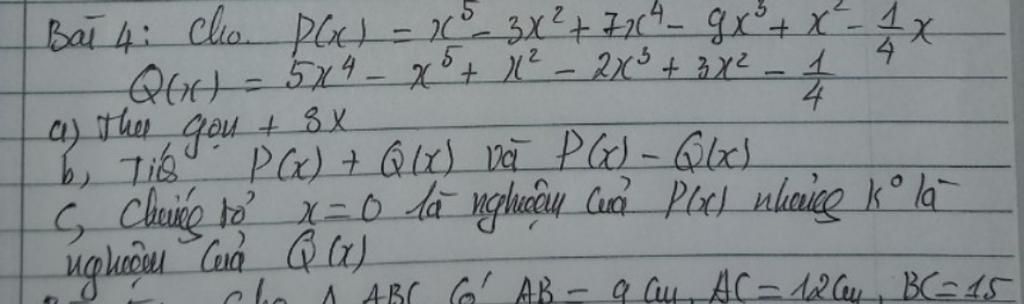 Bài 4: Cho P(x) = x⁵ - 3x² + 7x⁴ - 9x³ + x² - 1/4 x
Q(x) = 5x⁴ - x⁵ + x² - 2x³ + 3x² - 1/4
a) Thu gọn + SX
b, Tính P(x) + Q(x) và P(x) - Q(x)
c, Chứng tỏ x = 0 là nghiệm của P(x) nhưng k° là
nghiệm của Q(x)
Cho Δ ABC có AB = 9 cm, AC = 12 cm, BC = 15